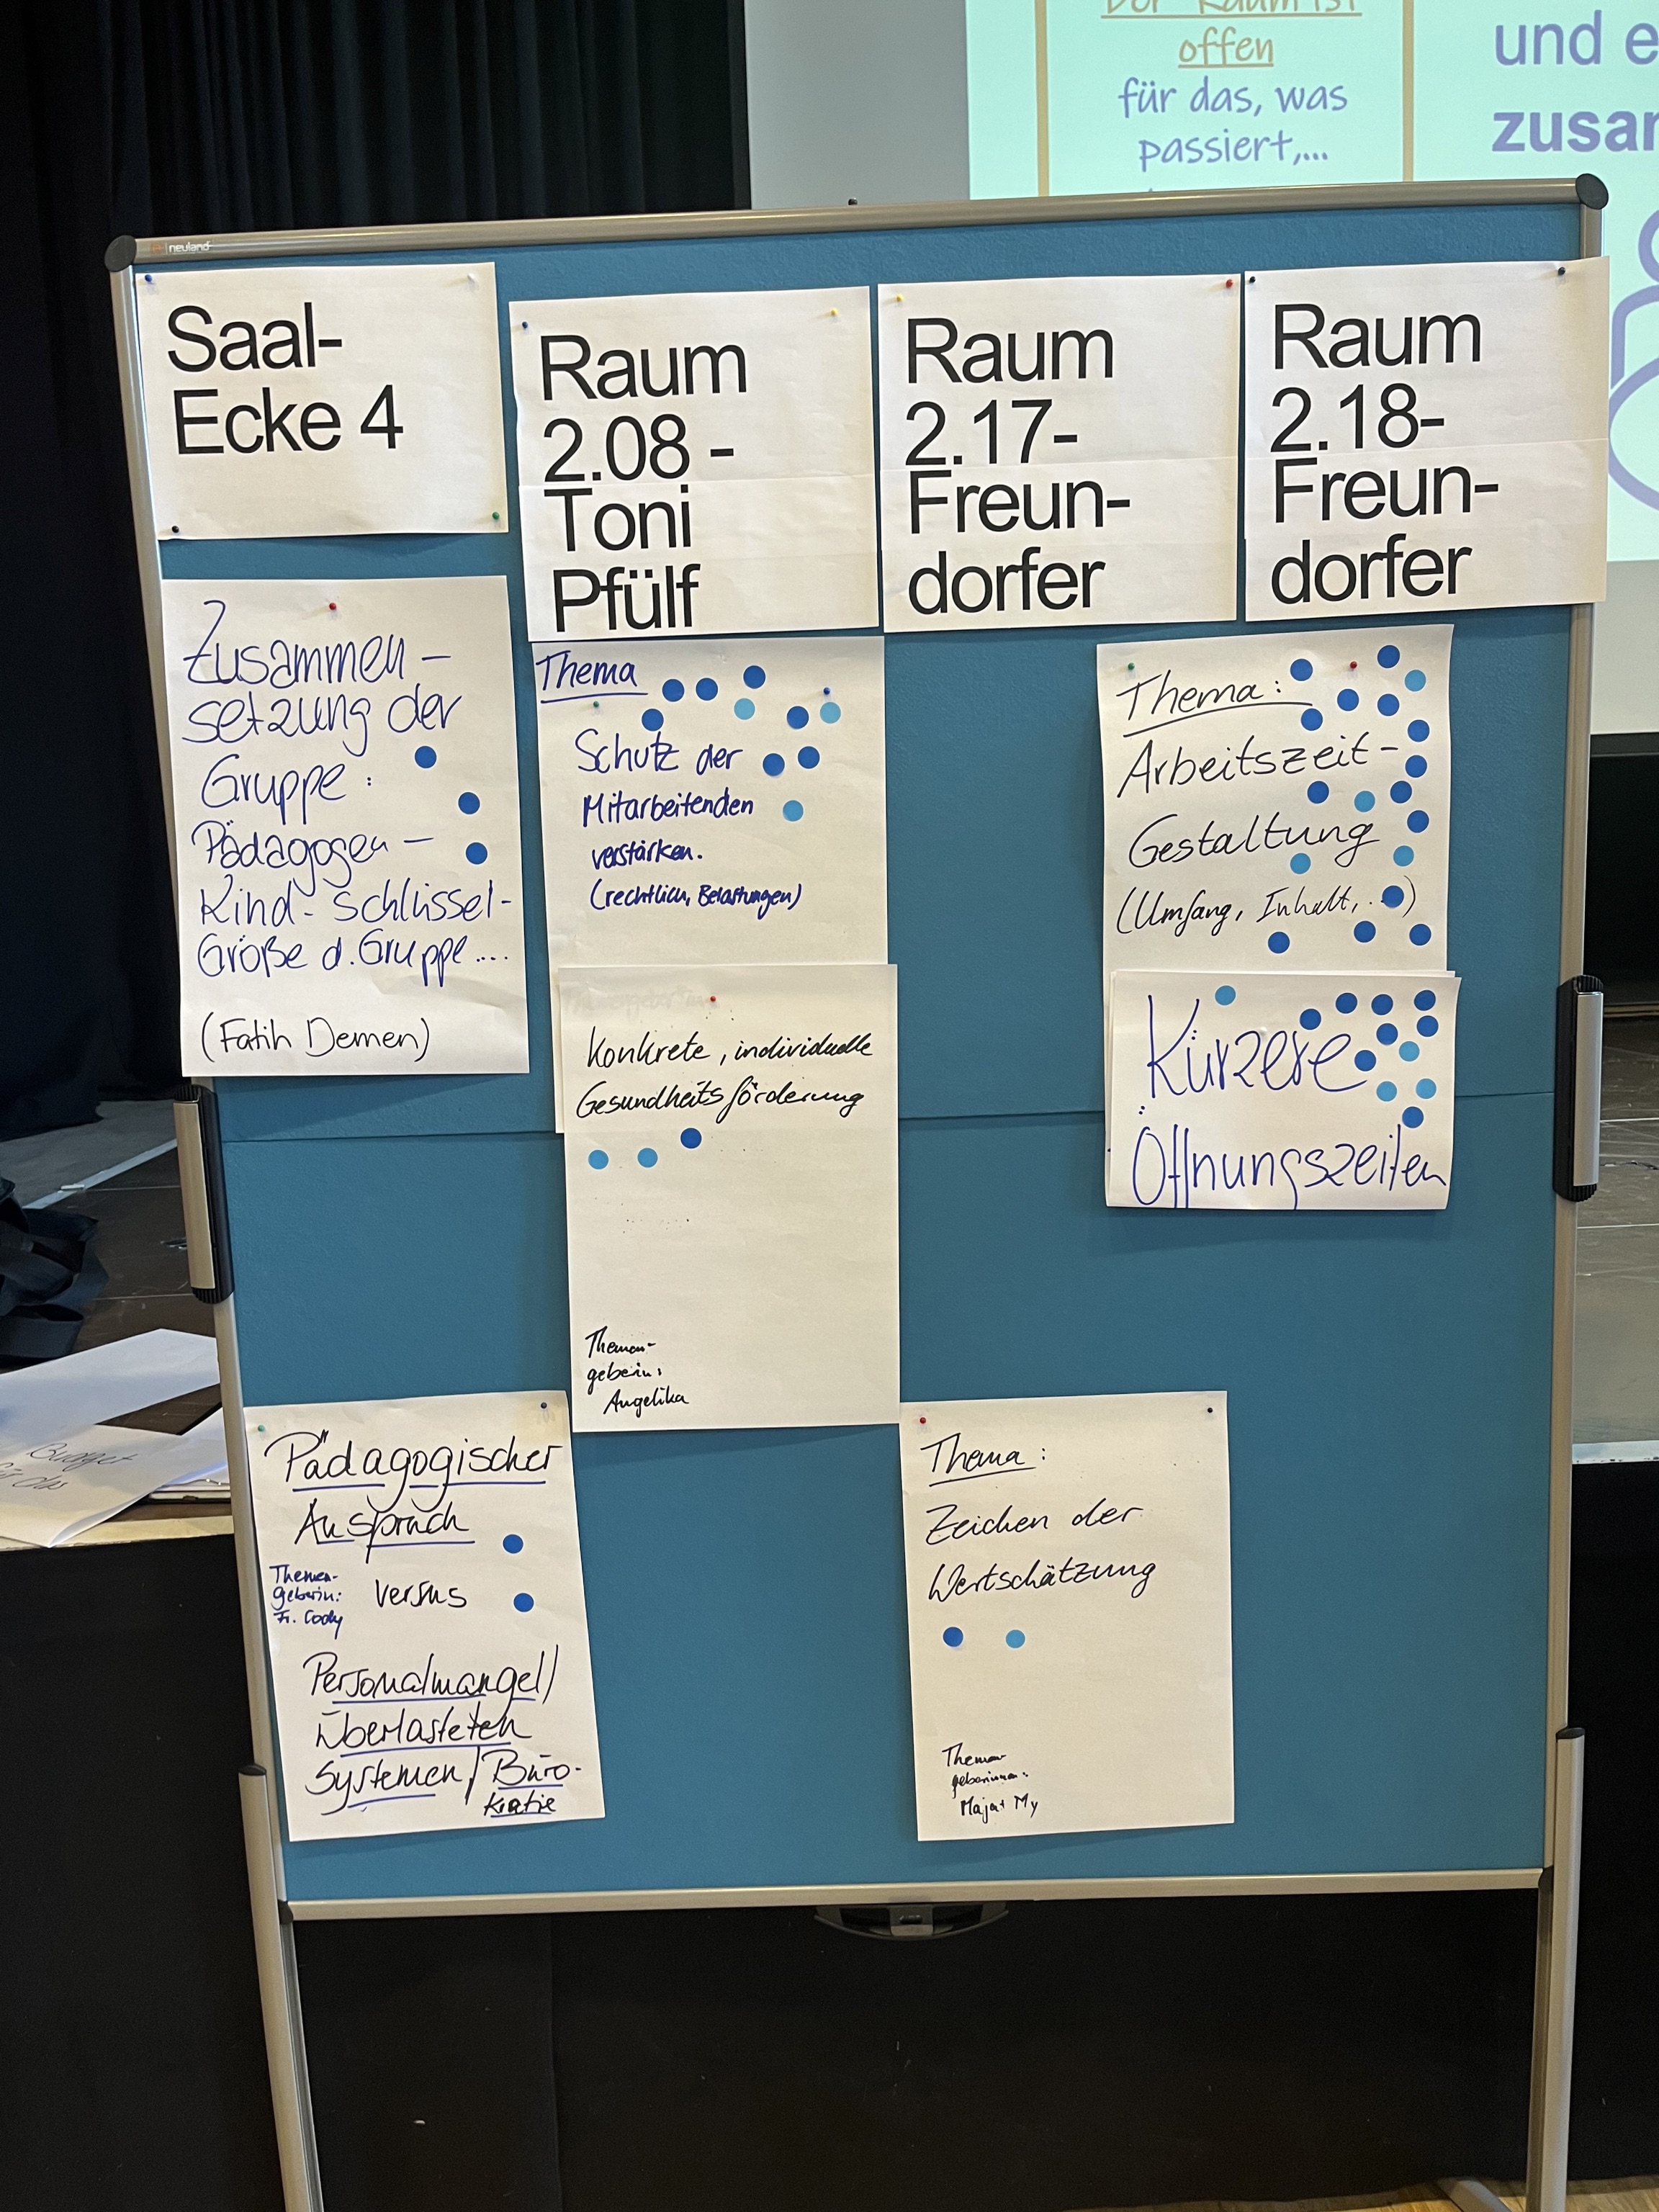 offen
für das, was
passiert,...
und e
zusar
neuland
Saal-
Ecke 4
Raum
2.08 -
Toni
Pfülf
Raum
2.17-
Freun-
dorfer
Raum
2.18-
Freun-
dorfer
Zusammen-
setzung der
Gruppe:
Pädagogen-
Kind-Schlüssel-
Größe d. Gruppe....
(Fatih Demen)
Thema
Schutz der
Mitarbeitenden
verstärken.
(rechtlich, Belastungen)
Konkrete, individuelle
Gesundheitsförderung
Themen-
geberin:
Angelika
Thema:
Arbeitszeit-
Gestaltung
(Umfang, Inhalt, ...)
Kürzere
Öffnungszeiten
Pädagogischer
Anspruch
Themen-
geberin:
Fr. Cody
versus
Personalmangel/
Überlasteten
Systemen/Büro-
kratie
Thema:
Zeichen der
Wertschätzung
Themen-
geberinnen:
Maja+ My
Budget
für das